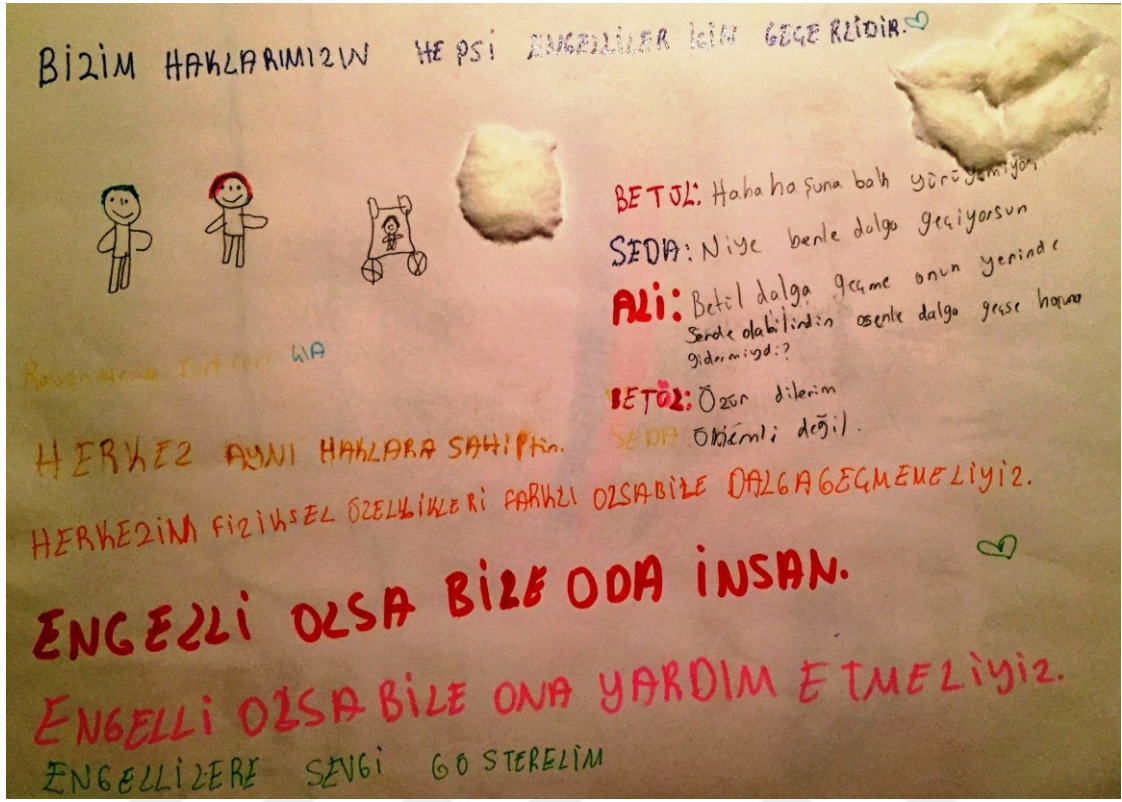 BİZİM HAKLARIMIZIN HEPSİ ENGELLİLER İÇİN GEÇERLİDİR.
BETÜL: Haha ha şuna bak yürüyemiyor
SEDA: Niye benle dalga geçiyorsun
ALİ: Betül dalga geçme onun yerinde
Sende olabilirdin osenle dalga geçse hoşuna
gidermiydi?
BETÜL: Özür dilerim
SEDA: Önemli değil.
HERKEZ AYNI HAKLARA SAHİPtir.
HERKEZİN FİZİKSEL ÖZELLİKLERİ FARKLI OLSABİLE DALGAGEÇMEMELİYİZ.
ENGELLİ OLSA BİLE ODA İNSAN.
ENGELLİ OLSABİLE ONA YARDIM ETMELİYİZ.
ENGELLİLERE SEVGİ GÖSTERELİM